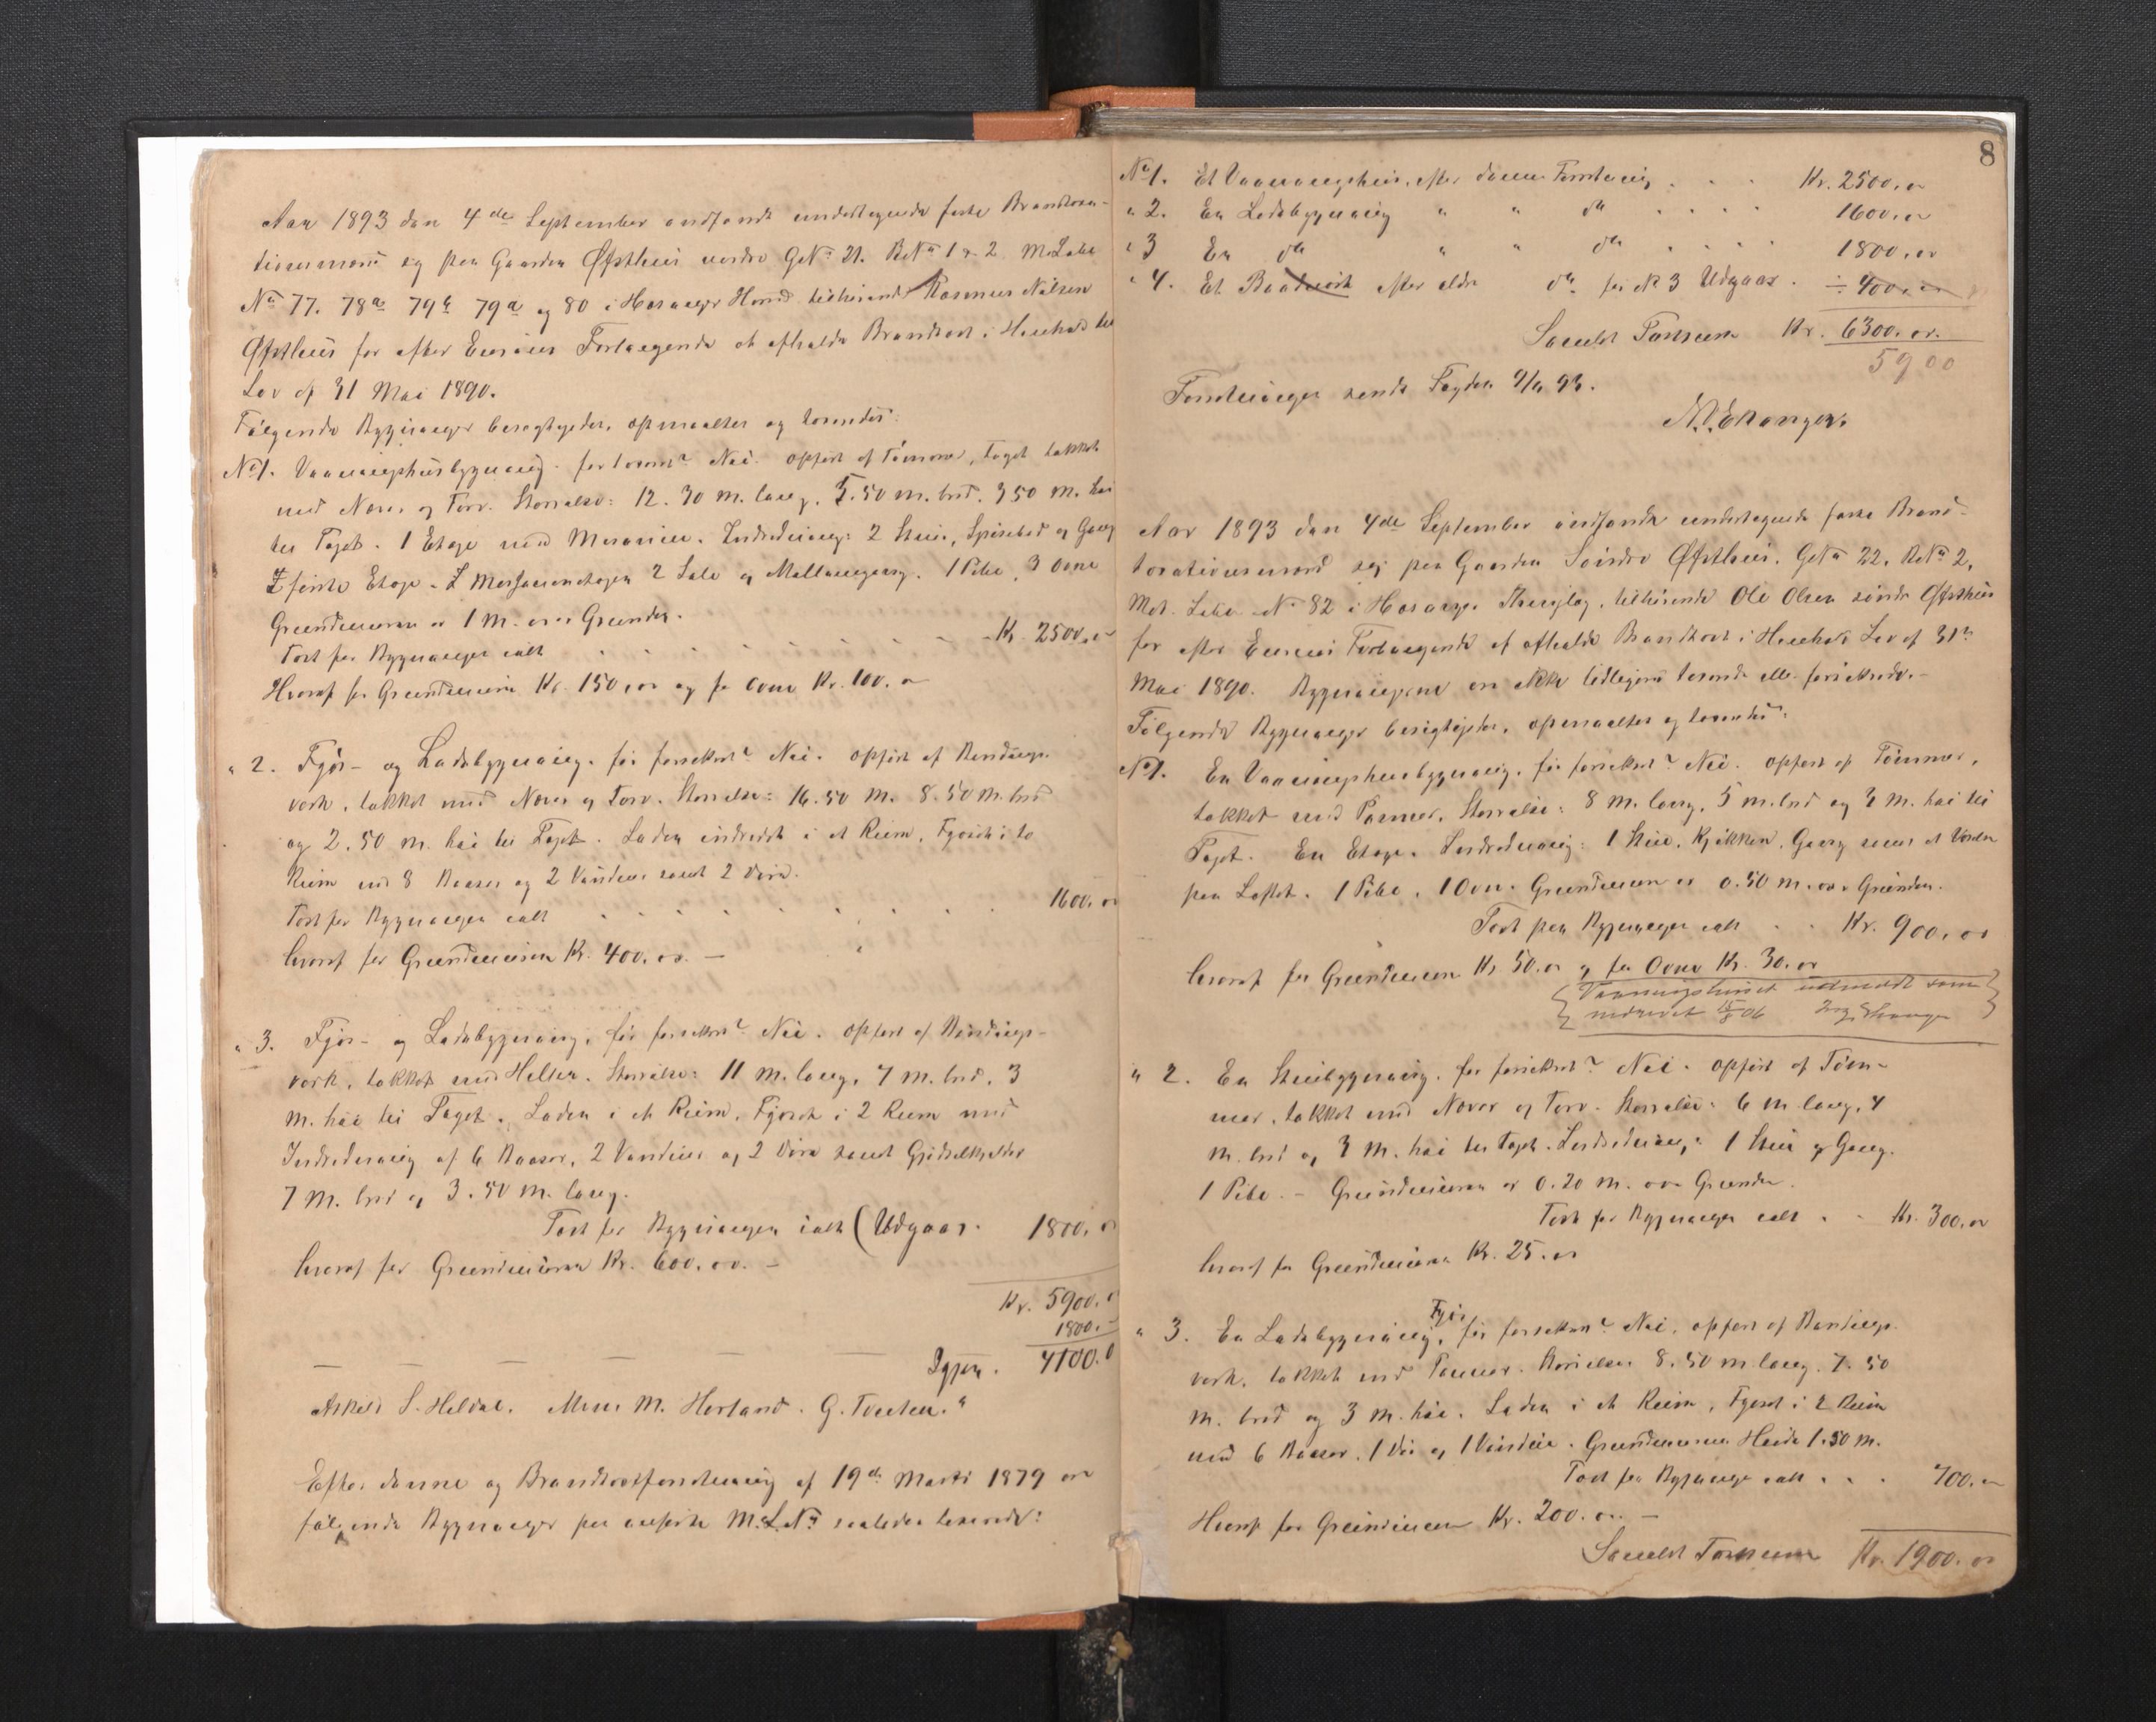 Aar 1893 den 4de September indfandt undertegnede faste Brandtaxa-
tionsmænd sig paa Gaarden Østhus nordre G.No 21. B.No 1 & 2. M. Løbe
No 77. 78a 79b 79a og 80 i Hosanger Herred tilhørende Rasmus Nilsen
Østhus for efter Eierens Forlangende at afholde Brandtaxt i Henhold til
Lov af 31 Mai 1890.
Følgende Bygninger besigtigedes, opmaaltes og taxeredes:
No 1. Vaaningshusbygning. før taxeret? Nei. opført af Tømmer, Taget takket
med Næver og Torv. Størrelse: 12.30 m. lang, 5.50 m. bred, 3.50 m. høi
til Taget. 1 Etage med Mesanine. Indredning: 2 Stuer, Spisebod og Gang
I første Etage. I Messaninetagen 2 Sale og Mellemgang. 1 Pibe, 3 Ovne
Grundmuren er 1 m. over Grunden.
Taxt for Bygningen ialt . . . . . . . Kr. 2500,00
Hvoraf for Grundmuren Kr. 150,00 og for Ovne Kr. 100,00
" 2. Fjøs- og Ladebygning. før forsikret? Nei. opført af Bindings-
verk, takket med Næver og Torv. Størrelse: 16.50 m. 8.50 m. bred
og 2.50 m. høi til Taget. Laden indredet i et Rum, Fjøset i to
Rum med 8 Baaser og 2 Vinduer samt 2 Døre.
Taxt for Bygningen ialt . . . . . . . 1600,00
hvoraf for Grundmuren Kr. 400,00. —
" 3. Fjøs- og Ladebygning, før forsikret? Nei. opført af Bindings-
verk, takket med Heller. Størrelse: 11 m. lang, 7 m. bred, 3
m. høi til Taget. Laden i et Rum, Fjøset i 2 Rum med
Indredning af 6 Baaser, 2 Vinduer og 2 Døre samt Gjødselkjelder
7 m. bred og 3.50 m. lang.
Taxt for Bygningen ialt (Udgaar. 1800,00
hvoraf for Grundmuren Kr. 600,00. —
Kr. 5900,0
1800.-
Igjen. 4100.0
Askild S. Heldal. Mons M. Herland. G. Tveten. "
Efter denne og Brandtaxtforretning af 19de Marts 1879 er
følgende Bygninger paa anførte M.L.No saaledes taxerede:
8
No 1. Et Vaaningshus, efter denne Forretning . . . Kr. 2500,00
" 2. En Ladebygning " " do . . . . 1600,00
" 3 En do " " do . . . . 1800,00
" 4. Et efter ældre do før No 3 Udgaar. ÷ 400,00
Samlet Taxtsum Kr. 6300.00.
5900
Forretningen sendt Fogden 9/11 93.
Aar 1893 den 4de September indfandt undertegnede faste Brand-
taxationsmænd sig paa Gaarden Søndre Østhus. G.No 22, B.No 2,
Mat. Løbe No 82 i Hosanger Thinglag, tilhørende Ole Olsen søndre Østhus
for efter Eierens Forlangende at afholde Brandtaxt i Henhold Lov af 31te
Mai 1890. Bygningerne er ikke tidligere taxerede eller forsikrede.-
Følgende Bygninger besigtigedes, opmaaltes og taxeredes:
No 1. En Vaaningshusbygning, før forsikret? Nei. opført af Tømmer,
takket med Panner, Størrelse: 8 m. lang, 5 m. bred og 3 m. høi til
Taget. En Etage. Indredning: 1 Stue, Kjøkken, Gang samt et Værelse
paa Loftet. 1 Pibe, 1 Ovn. Grundmuren er 0.50 m. over Grunden.
Taxt paa Bygningen ialt . . Kr. 900,00
hvoraf for Grundmuren Kr. 50.00 og for Ovne Kr. 30.00
Vaaningshuset udmeldt som
nedrevet 15/8 06
" 2. En Stuebygning. før forsikret? Nei. opført af Tøm-
mer, takket med Næver og Torv. Størrelse: 6 m lang, 4
m. bred og 3 m. høi til Taget. Indredning: 1 Stue og Gang.
1 Pibe. - Grundmuren er 0.20 m. over Grunden.
Taxt for Bygningen ialt . . Kr. 300,00
hvoraf for Grundmuren Kr. 25.00
Fjøs
" 3. En Ladebygning, før forsikret? Nei, opført af Bindings-
verk, takket med Panner. Størrelse 8.50 m lang, 7.50
m. bred og 3 m. høi. Laden i et Rum, Fjøset i 2 Rum
med 6 Baaser, 1 Dør og 1 Vindue. Grundmurens Høide 1.50 m.
Taxt for Bygningen ialt . . . 700,00
Hvoraf for Grundmuren Kr. 200.00. —
Samlet Taxtsum Kr. 1900.00